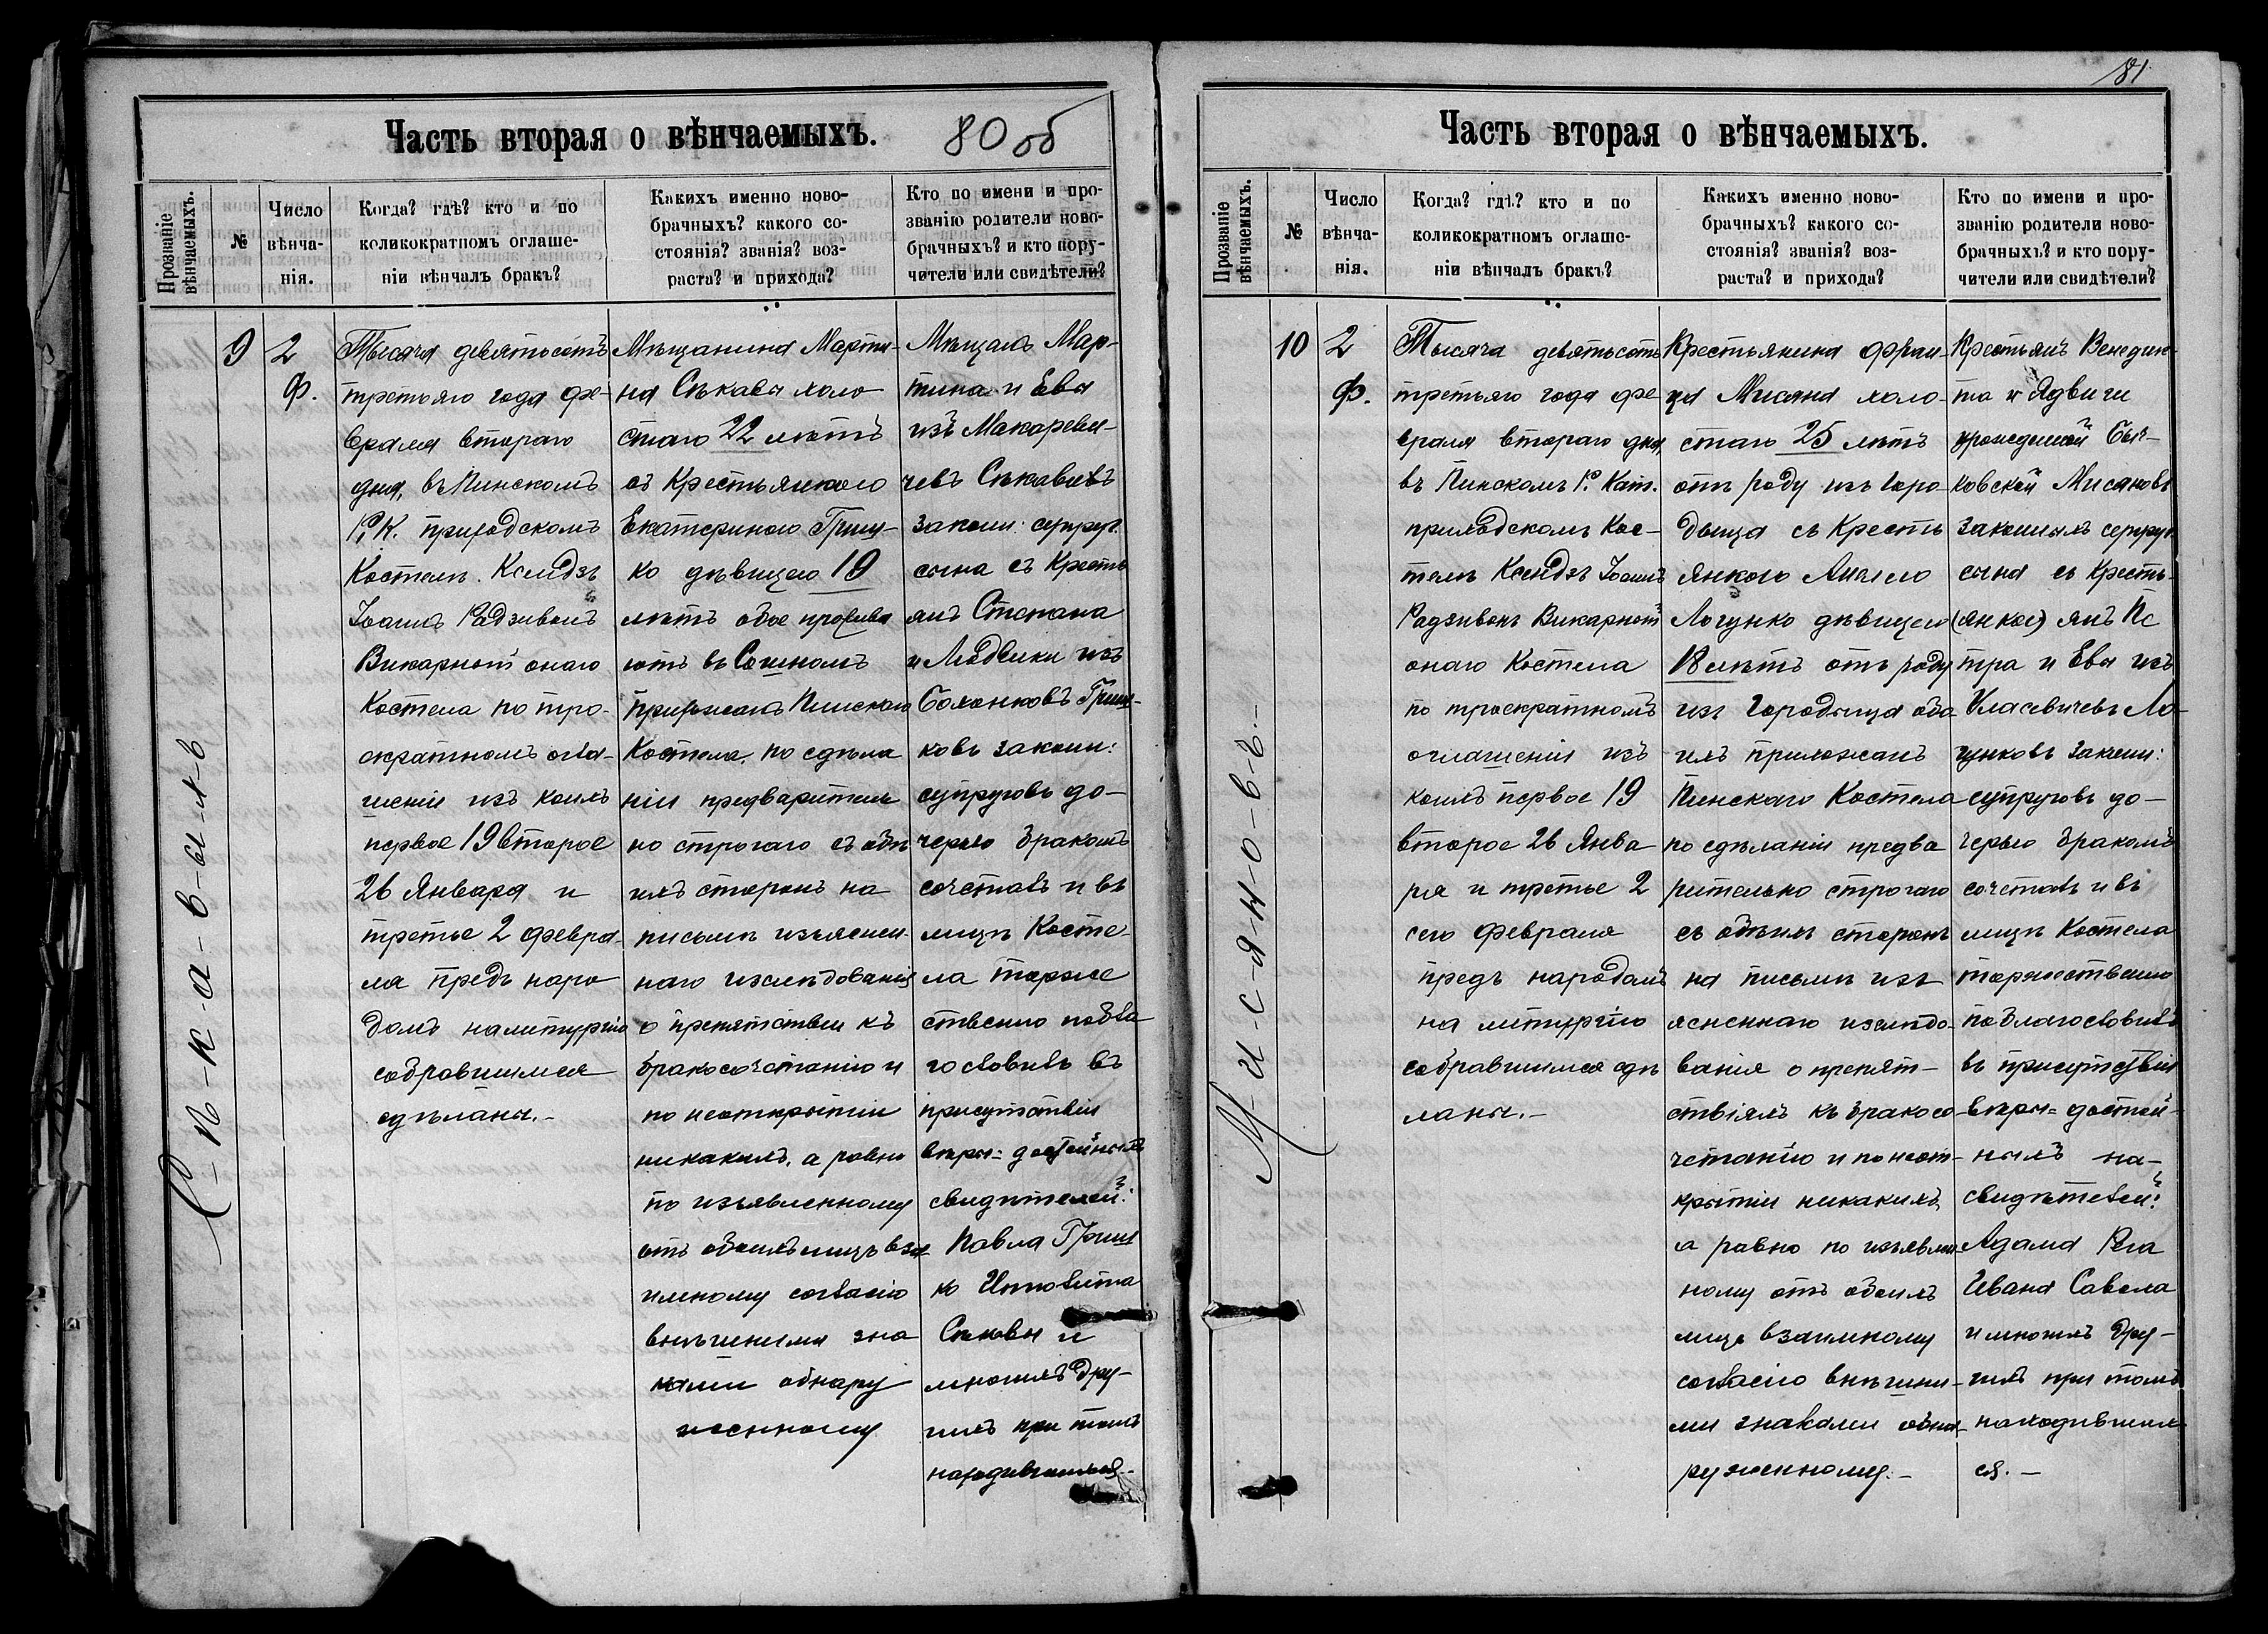 81
Часть вторая о вѣнчаемыхъ.
80 об
Прозваніе вѣнчаемыхъ.
№
Число
вѣнча-
нія.
Когда? гдѣ? кто и по
коликократномъ оглаше-
ніи вѣнчалъ бракъ?
Какихъ именно ново-
брачныхъ? какого со-
стоянія? званія? воз-
раста? и прихода?
Кто по имени и про-
званію родители ново-
брачныхъ? и кто пору-
чители или свидѣтели?
9
2
Ф.
Тысяча девятьсотъ
третьяго года фе-
враля втораго
дня, въ Пинскомъ
Р. К. приходскомъ
Костелѣ Ксендзъ
Іоаннъ Радзивонъ
Викарный онаго
Костела по тро-
екратномъ огла-
шеніи изъ коихъ
первое 19 второе
26 Января и
третье 2 февра-
ля предъ наро
домъ на литургію
собравшимся
сдѣланы.-
Мѣщанина Марти-
на холо
стаго 22 лѣтъ
съ Крестьянкою
Екатериною Гриш-
ко дѣвицею 19
лѣтъ обое прожива
ютъ въ
Прихожанъ Пинскаго
Костела, по сдѣла
ніи предваритель
но строгаго съ обѣ
ихъ сторонъ на
письмѣ изъяснен-
наго изслѣдованія
о препятствіи къ
бракосочетанію и
по неоткрытіи
никакихъ, а равно
по изъявленному
отъ обоихъ лицъ вза
имному согласію
внѣшними зна
ками обнару
женному
Мѣщанъ Мар-
тина и Евы
изъ Макареви-
чевъ
законн: супруг.
сына съ Кресть
янъ Степана
и Людвики изъ
Гриш-
ковъ законн:
супруговъ до-
черью бракомъ
сочеталъ и въ
лицѣ Косте-
ла торже
ственно побла
гословилъ въ
присутствіи
вѣры= достойныхъ
свидѣтелей:
Павла Гриш
ко Ипполита
и
многихъ дру-
гихъ при томъ
находившихся-
Часть вторая о вѣнчаемыхъ.
Прозваніе вѣнчаемыхъ.
№
Число
вѣнча-
нія.
Когда? гдѣ? кто и по
коликократномъ оглаше-
ніи вѣнчалъ бракъ?
Какихъ именно ново-
брачныхъ? какого со-
стоянія? званія? воз-
раста? и прихода?
Кто по имени и про-
званію родители ново-
брачныхъ? и кто пору-
чители или свидѣтели?
М-и-с-я-н-о-в-ъ.-
10
2
Ф.
Тысяча девятьсотъ
третьяго года фе
враля втораго дня,
въ Пинскомъ Р. Кат.
приходскомъ Кос-
телѣ Ксендзъ Іоаннъ
Радзивонъ Викарный
онаго Костела
по троекратномъ
оглашеніи изъ
коихъ первое 19
второе 26 Янва
ря и третье 2
сего Февраля
предъ народомъ
на литургію
собравшимся сдѣ
ланы.-
Крестьянина Фран-
ца Мисяна холо-
стаго 25 лѣтъ
отъ роду изъ Горо-
дища съ Кресть
янкою
Логунко дѣвицею
18 лѣтъ отъ роду
изъ Городища обо
ихъ прихожанъ
Пинскаго Костела
по сдѣланіи предва
рительно строгаго
съ обѣихъ сторонъ
на письмѣ изъ
ясненнаго изслѣдо-
ванія о препят-
ствіяхъ къ бракосо-
четанію и по неот-
крытіи никакихъ,
а равно по изъявлен
ному отъ обоихъ
лицъ взаимному
согласію внѣшни-
ми знаками обна-
руженному.-
Крестьянъ Венедик-
та и Ядвиги
урожденной
Мисяновъ
законныхъ супруг.
сына съ Кресть-
(янкою) янъ Пе
тра и Евы изъ
Ло-
гунковъ законн:
супруговъ до-
черью бракомъ
сочеталъ и въ
лицѣ Костела
торжественно
поблагословилъ
въ присутствіи
вѣры= достой-
ныхъ на-
свидѣтелей:
Адама
Ивана Савола
и многихъ дру-
гихъ при томъ
находившихъ
ся.-